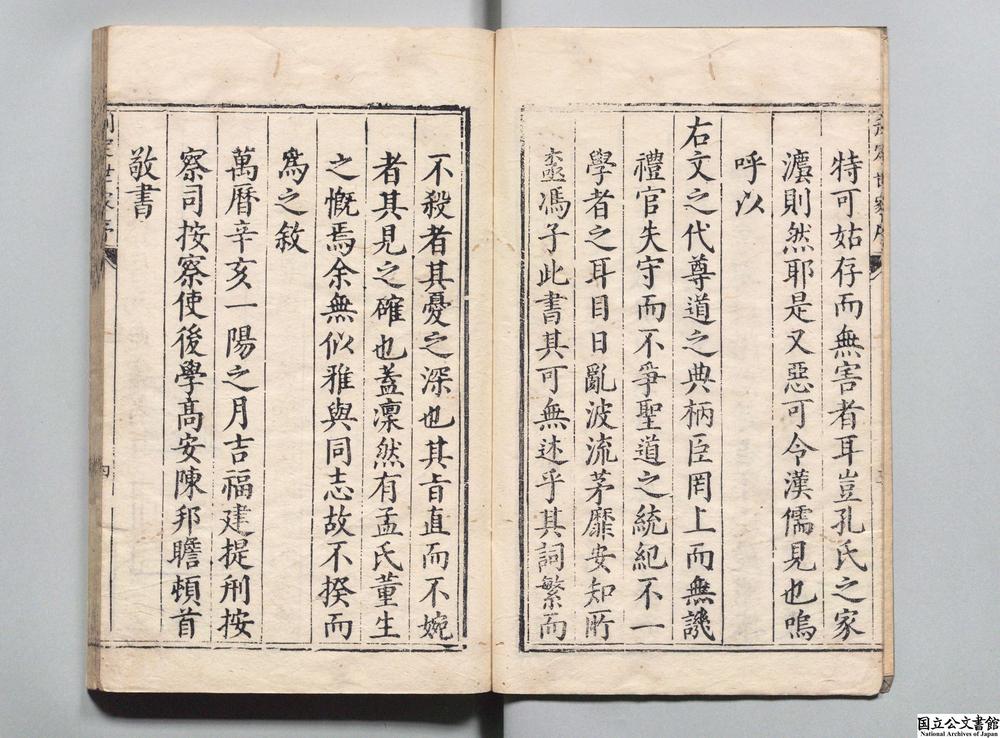 特可姑存而無害者耳豈孔氏之家
灋則然耶是又惡可令漢儒見也嗚
呼以
右文之代尊道之典柄臣罔上而無譏
禮官失守而不爭聖道之統紀不一
學者之耳目日亂波流茅靡安知所
盡馮子此書其可無述乎其詞繁而
不殺者其憂之深也其旨直而不婉
者其見之確也蓋凜然有孟氏董生
之慨焉余無似雅與同志故不揆而
為之敘
萬曆辛亥一陽之月吉福建提刑按
察司按察使後學高安陳邦瞻頓首
敬書
四
国立公文書館
National Archives of Japan